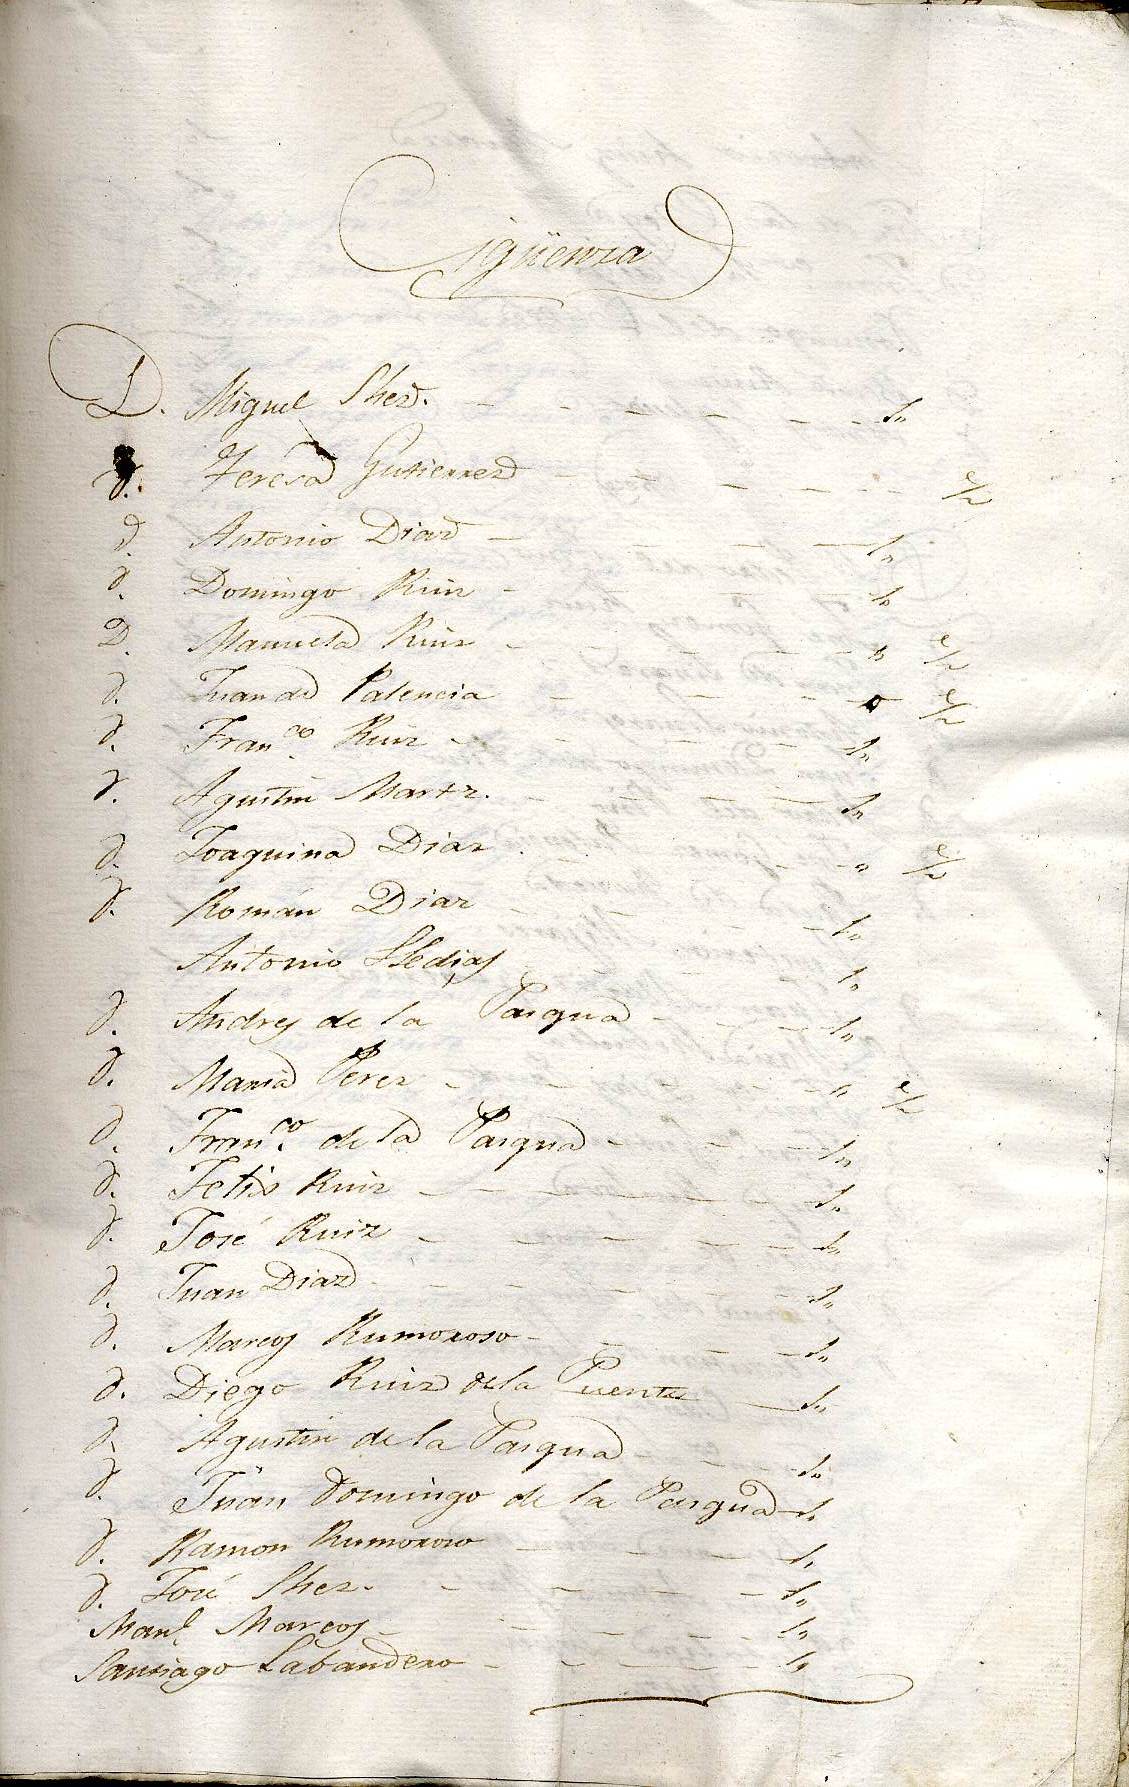 Cigüenza
D. Miguel Shez. 1„
d. Teresa Gutierrez ½
d. Antonio Diaz 1„
d. Domingo Ruiz 1„
D. Manuela Ruiz „ ½
d. Juan de Palencia ½
d. Fran.co Ruiz 1„
d. Agustin Martz. 1„
d. Joaquina Diaz „ ½
d. Román Diaz 1„
Antonio 1„
d. Andres de la Pasqua 1„
d. Maria Perez „ ½
d. Fran.co de la Pasqua 1„
d. Felis Ruiz 1„
d. José Ruiz 1„
d. Juan Diaz 1„
d. Marcos Rumoroso 1„
d. Diego Ruiz de la Puente 1„
d. Agustin de la Pasqua 1„
d. Juan Domingo de la Pasqua 1„
d. Ramon Rumoroso 1„
d. José Shez. 1„
Manl. Marcos 1„
Santiago Labandero 1„